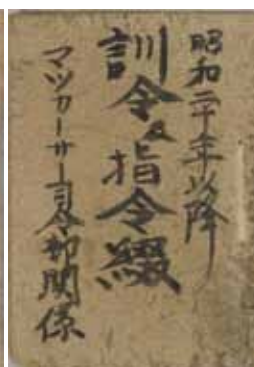 昭和二十年以降
訓令及指令綴
マツカーサー司令部関係